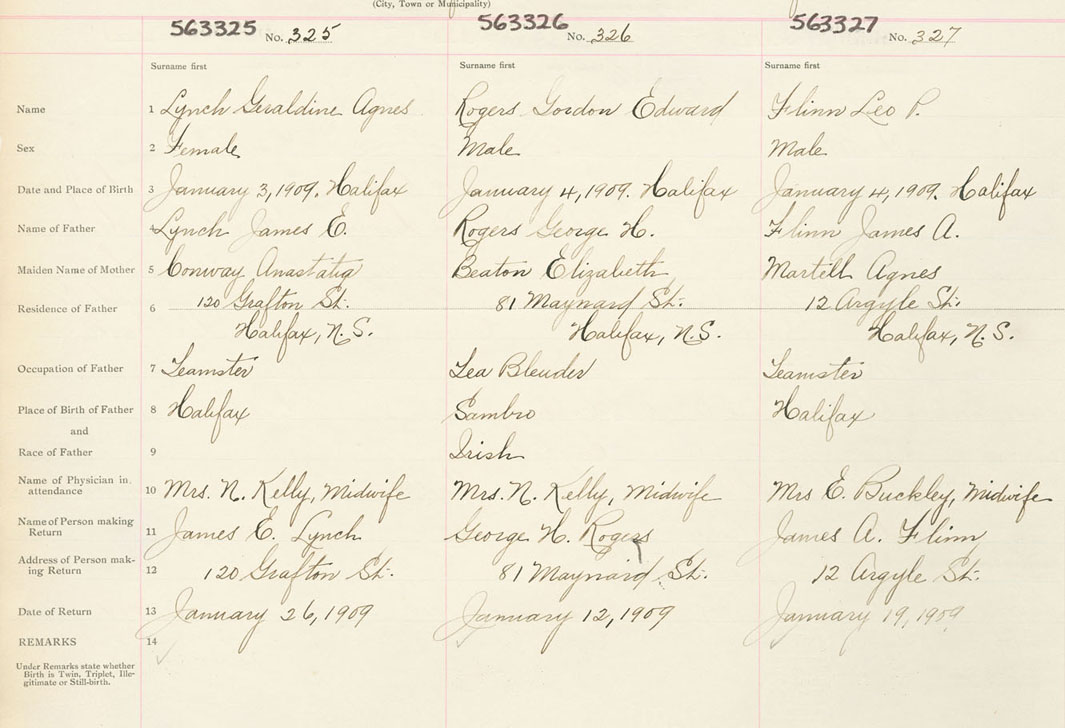 (City, Town or Municipality)
563325 No. 325 563326 No. 326 563327 No. 327
Surname first Surname first Surname first
Name 1 Lynch Geraldine Agnes Rogers Gordon Edward Flinn Leo P.
Sex 2 Female Male Male
Date and Place of Birth 3 January 3, 1909. Halifax January 4, 1909. Halifax January 4, 1909. Halifax
Name of Father 4 Lynch James E. Rogers George H. Flinn James A.
Maiden Name of Mother 5 Conway Anastatia Beaton Elizabeth Martell Agnes
Residence of Father 6 120 Grafton St. 81 Maynard St. 12 Argyle St.
Halifax, N.S. Halifax, N.S. Halifax, N.S.
Occupation of Father 7 Teamster Tea Blender Teamster
Place of Birth of Father 8 Halifax Sambro Halifax
and
Race of Father 9 Irish
Name of Physician in
attendance 10 Mrs. N. Kelly, Midwife Mrs. N. Kelly, Midwife Mrs E. Buckley, Midwife
Name of Person making
Return 11 James E. Lynch George H. Rogers James A. Flinn
Address of Person mak-
ing Return 12 120 Grafton St. 81 Maynard St. 12 Argyle St.
Date of Return 13 January 26, 1909 January 12, 1909 January 19, 1909
REMARKS 14
Under Remarks state whether
Birth is Twin, Triplet, Ille-
gitimate or Still-birth.